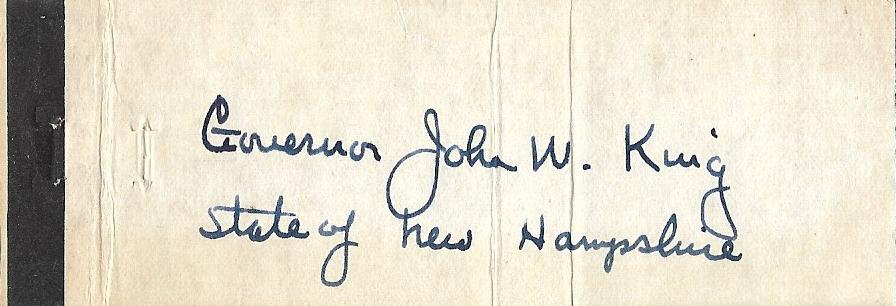 Governor John W. King
State of New Hampshire